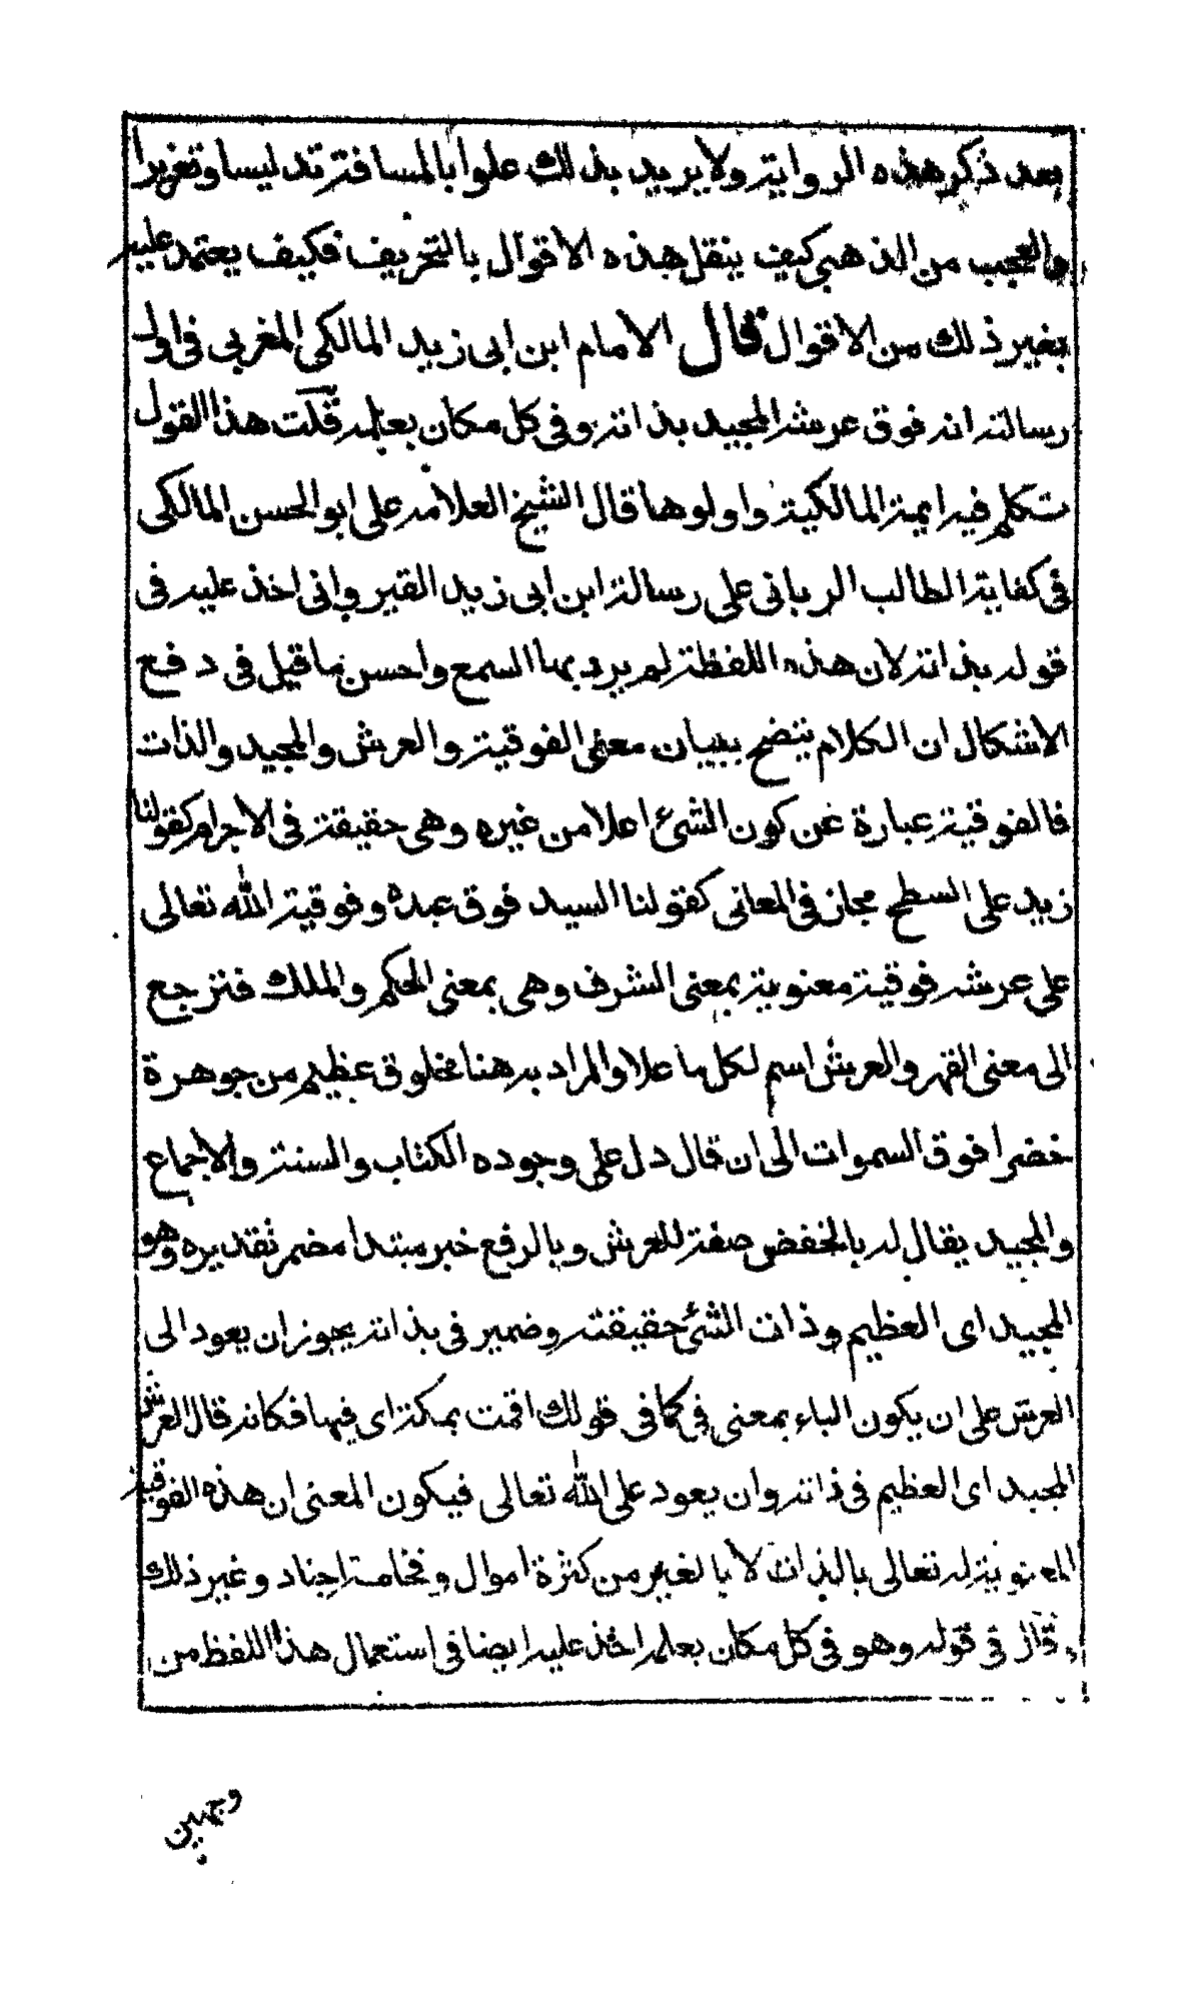 بعد ذكر هذه الرواية ولا يريد بذلك علوا بالمسافة تدليسا وتغريرا
والعجب من الذهبي كيف ينقل هذه الاقوال بالتحريف فكيف يعتمد عليه
بغير ذلك من الاقوال قال الامام ابن ابى زيد المالكى المغربى فى اول
رسالته انه فوق عرشه المجيد بذاته وفى كل مكان بعلمه قلت هذا القول
تكلم فيه ايمة المالكية واولوها قال الشيخ العلامه على ابو الحسن المالكى
فى كفاية الطالب الربانى على رسالة ابن ابى زيد القير وانى اخذ عليه فى
قوله بذاته لان هذه اللفظة لم يرد بها السمع واحسن ما قيل فى دفع
الاشكال ان الكلام يتضح ببيان معنى الفوقية والعرش والمجيد والذات
فالفوقية عبارة عن كون الشئ اعلا من غيره وهى حقيقة فى الاجرام كقولنا
زيد على السطح مجاز فى المعانى كقولنا السيد فوق عبده وفوقية الله تعالى
على عرشه فوقية معنوية بمعنى الشرف وهى بمعنى الحكم والملك فترجع
الى معنى القهر والعرش اسم لكل ما علا والمراد به هنا مخلوق عظيم من جوهرة
خضرا فوق السموات الى ان قال دل على وجوده الكتاب والسنة والاجماع
والمجيد يقال له بالخفض صفة للعرش وبالرفع خبر مبتدا مضمر تقديره وهو
المجيد اى العظيم وذات الشئ حقيقته وضمير فى بذاته يجوز ان يعود الى
العرش على ان يكون الباء بمعنى فى كما فى قولك اقمت بمكة اى فيها فكانه قال العرش
المجيد اى العظيم فى ذاته وان يعود على الله تعالى فيكون المعنى ان هذه الفوقية
المعنوية له تعالى بالذات لا بالغير من كثرة اموال وفخامة اجناد وغير ذلك
وقال فى قوله وهو فى كل مكان بعلمه اخذ عليه ايضا فى استعمال هذا اللفظ من
وجهين